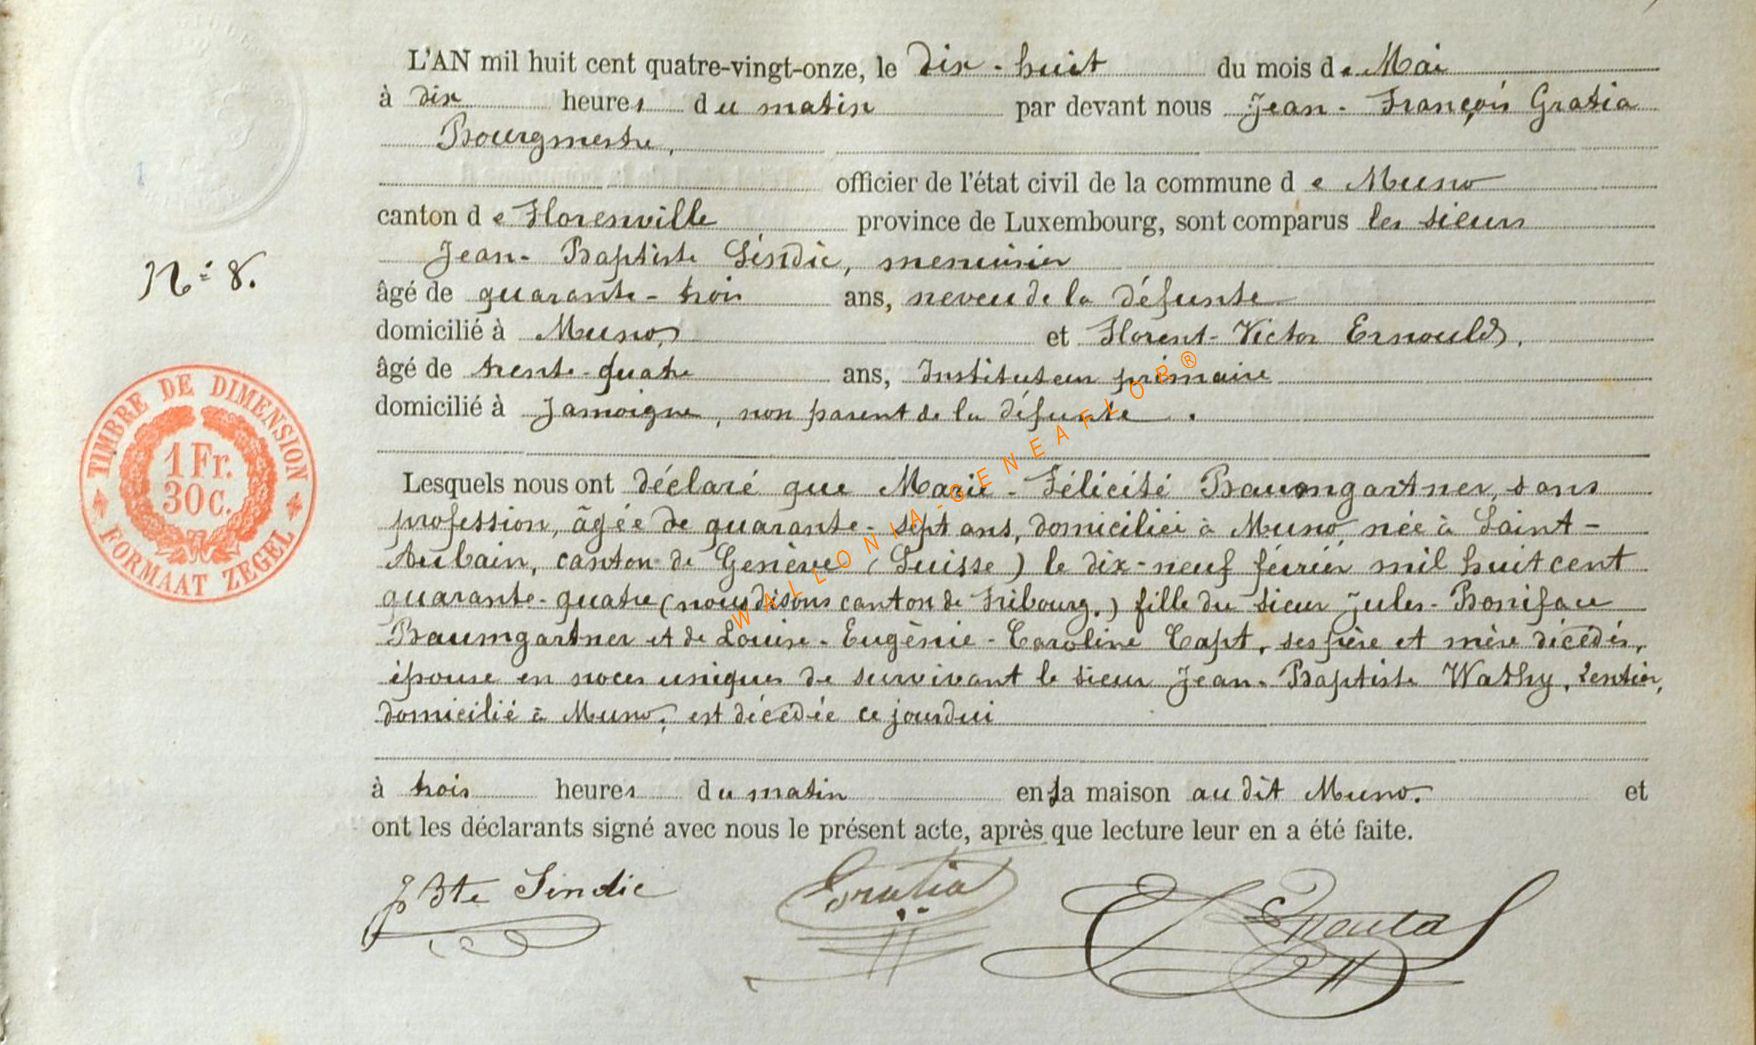 L'AN mil huit cent quatre-vingt-onze, le dix-huit du mois de Mai
à dix heures du matin par devant nous Jean-François Gratia
Bourgmestre,
officier de l'état civil de la commune de Muno
canton de Florenville province de Luxembourg, sont comparus les sieurs
Jean-Baptiste Sindic, menuisier
N° 8.
âgé de quarante-trois ans, neveu de la défunte
domicilié à Muno, et Florent-Victor Ernould,
âgé de trente-quatre ans, Instituteur primaire
domicilié à Jamoigne, non parent de la défunte.
TIMBRE DE DIMENSION
1 Fr.
30 C.
FORMAAT ZEGEL
Lesquels nous ont déclaré que Marie-Félicité Baumgartner, sans
profession, âgée de quarante-sept ans, domiciliée à Muno née à Saint-
Aubain, canton de Genève (Suisse) le dix-neuf février mil huit cent
quarante-quatre (nous disons canton de Fribourg.) fille du sieur Jules-Boniface
Baumgartner et de Louise-Eugènie-Caroline Capt, ses père et mère décédés,
épouse en noces uniques de survivant le sieur Jean-Baptiste Wathy, rentier,
domicilié à Muno, est décédée ce jourdui
à trois heures du matin en sa maison au dit Muno. et
ont les déclarants signé avec nous le présent acte, après que lecture leur en a été faite.
J Bte Sindic Gratia Ernould
WALLONIA-GENEAFLOB®